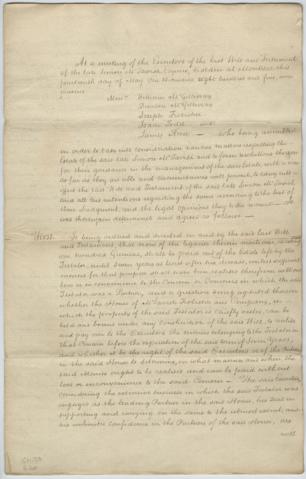 At a meeting of the Executors of the last Will and Testament
of the late Simon McTavish Esquire, holden at Montreal this
fourteenth day of May One thousand eight hundred and five, were
present
Messrs. William McGillivray
Duncan McGillivray
Joseph Frobisher
Isaac Todd and
James Reid who being assembled
in order to take into consideration various matters respecting the
Estate of the said late Simon McTavish and to form resolutions thereon
for their guidance in the management of the said Estate, with a view
so far as they are able and circumstances will permit, to carry into
effect the last Will and Testament of the said late Simon McTavish
and all his intentions regarding the same according to the best of
their Judgment, and the legal opinions they
was thereupon determined and agreed as follows
First. It being ordered and directed in and by the said last Will
and Testament, that none of the legacies therein mentioned, exceeding
one hundred Guineas, shall be paid out of the debts left by the
Testator, until seven years at least after his demise, unless sufficient
monies for that purpose shall have been realized therefrom without
loss or inconvenience to the Concern in Commerce in which the said
Testator was a Partner, and a question being agitated thereon
whether the House of McTavish Frobisher and Company, in
which the property of the said Testator is chiefly vested, can be
held and bound under any construction of the said Will, to realize
and pay over to the Executors the monies belonging to the Testator in
that Concern before the expiration of the said term of Seven Years,
and whether it be the right of the said Executors or of the Partners
in the said House to determine, in what manner and when the
said Monies ought to be realized and can be paid without
loss or inconvenience to the said Concern. The said Executors
considering the extensive business in which the said Testator was
engaged as the leading Partner in the said House, his zeal in
supporting and carrying on the same to the utmost extent, and
his unlimited confidence in the Partners of the said House, are